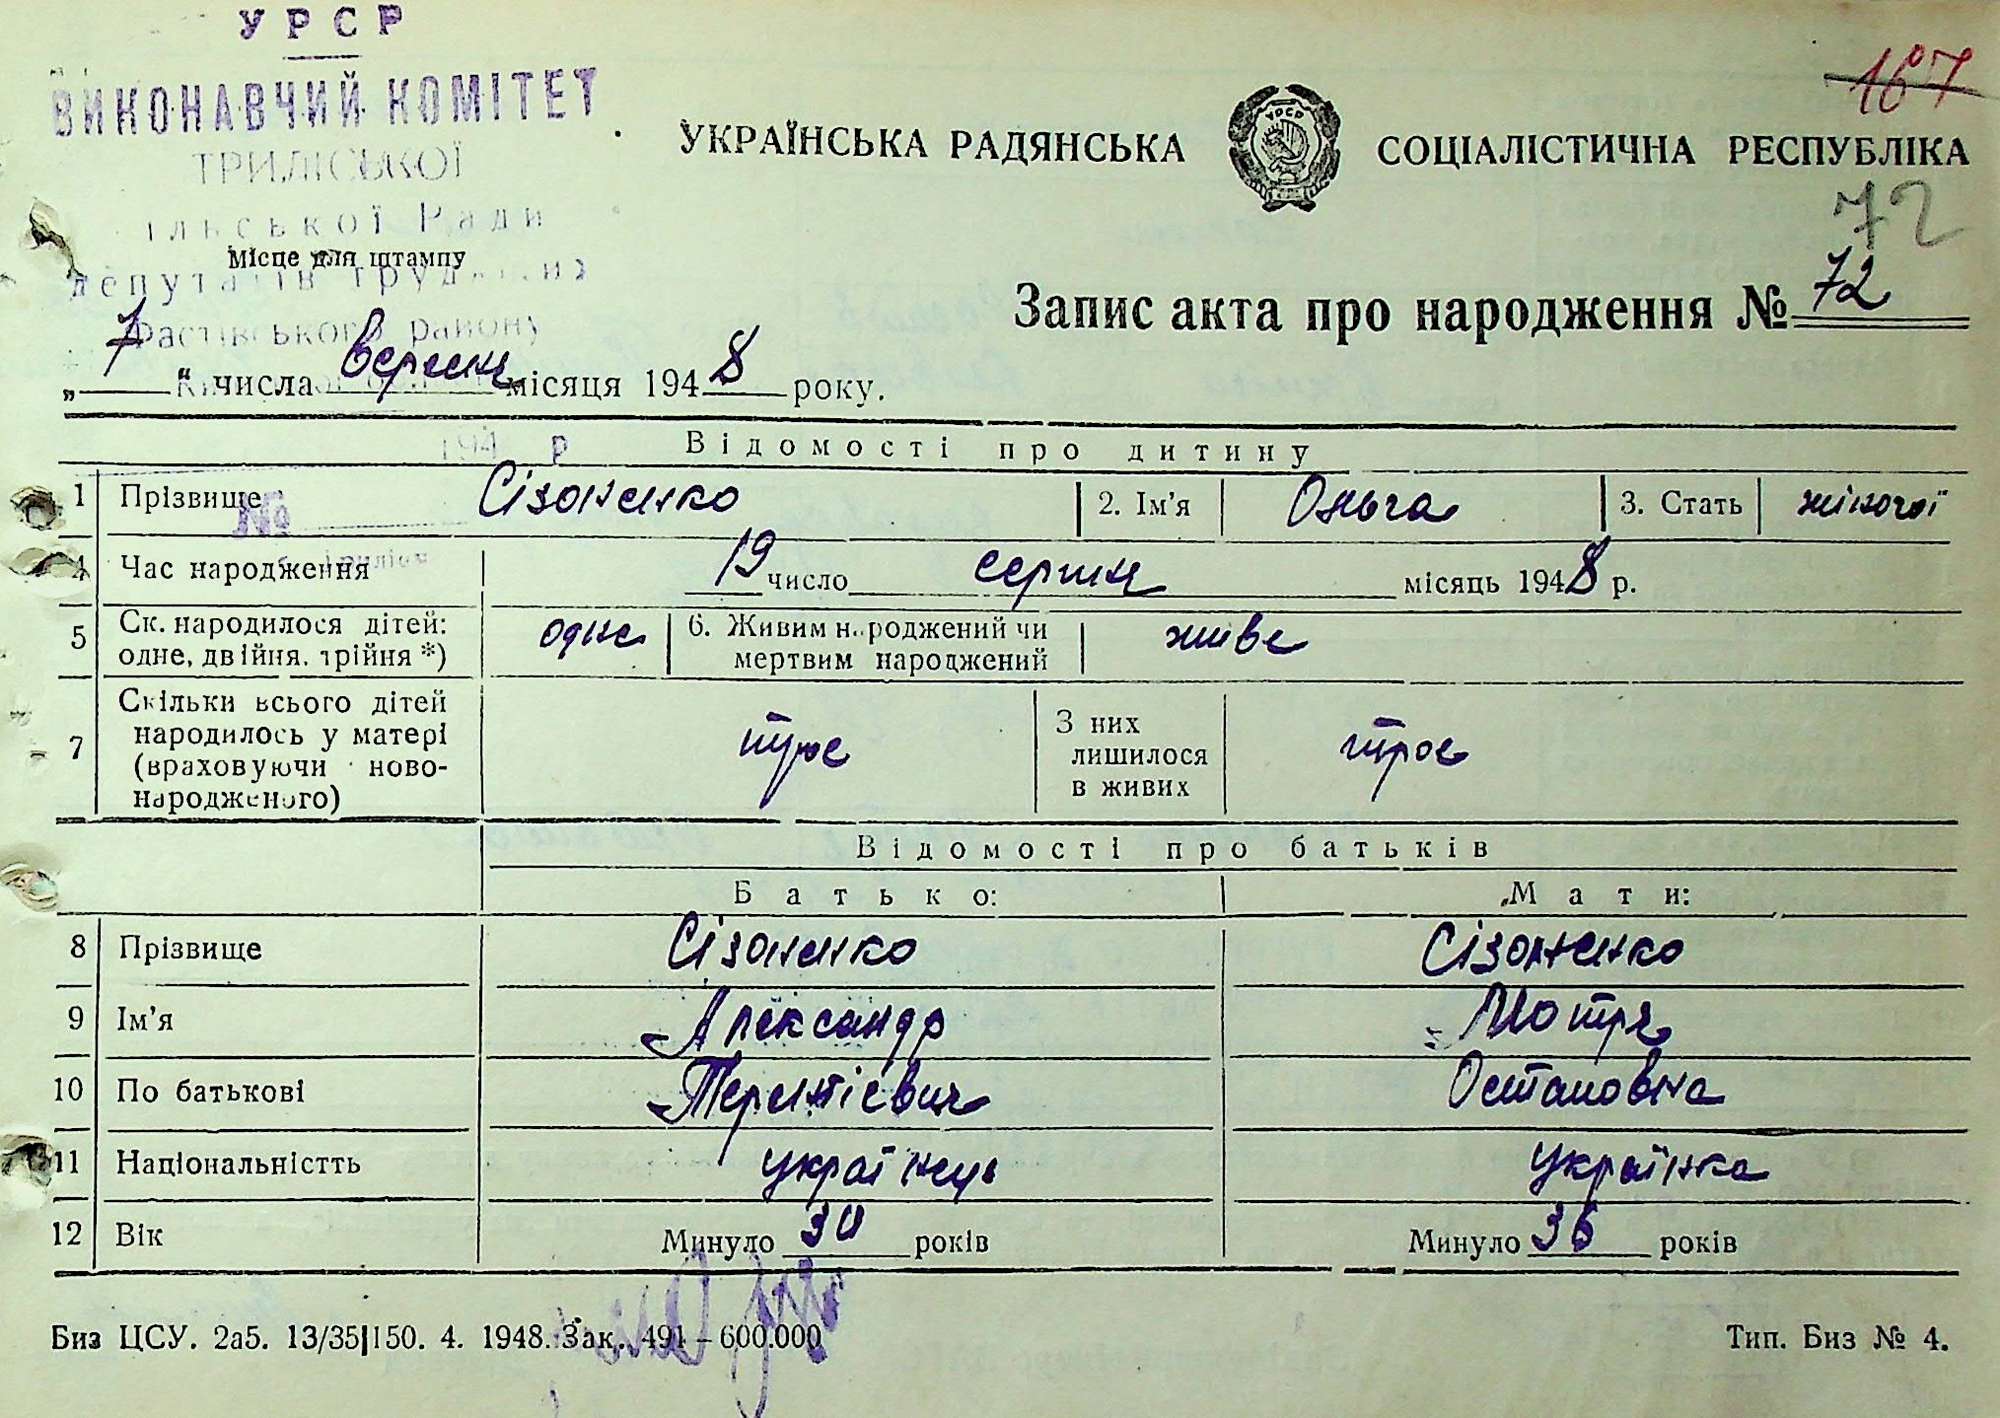 УРСР
ВИКОНАВЧИЙ КОМІТЕТ
ТРИЛІСЬКОЇ
ільської Ради
Місце для штампу
депутатів
Фастівського району
167
УКРАЇНСЬКА РАДЯНСЬКА СОЦІАЛІСТИЧНА РЕСПУБЛІКА
УРСР
72
Запис акта про народження № 72
„ 7 " числа вересня місяця 1948 року.
194 р
Відомості про дитину
1 Прізвище Сізоненко 2. Ім'я Ольга 3. Стать жіночої
№
4 Час народження 19 число серпня місяць 1948 р.
5 Ск. народилося дітей: одне, двійня, трійня *) одне 6. Живим народжений чи мертвим народжений живе
7 Скільки всього дітей народилось у матері (враховуючи новонародженого) троє З них лишилося в живих троє
Відомості про батьків
Батько: Мати:
8 Прізвище Сізоненко Сізоненко
9 Ім'я Александр Мотря
10 По батькові Терентієвич Остаповна
11 Національністть українець українка
12 Вік Минуло 30 років Минуло 36 років
Биз ЦСУ. 2а5. 13/35|150. 4. 1948. Зак. 491 – 600.000 Тип. Биз № 4.